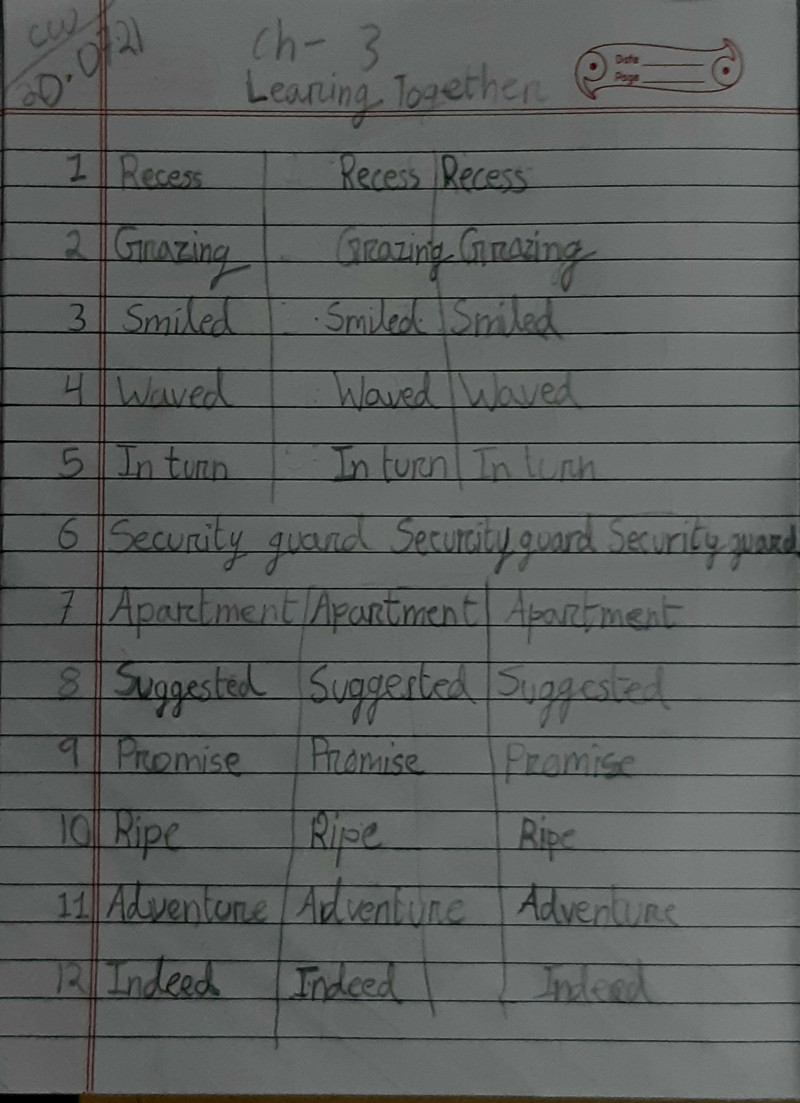 CW Ch- 3
20.07.21 Learing Together
Date
Page
1 Recess Recess Recess
2 Grazing Grazing Grazing
3 Smiled Smiled Smiled
4 Waved Waved Waved
5 In turn In turn In turn
6 Security guard Security guard Security guard
7 Apartment Apartment Apartment
8 Suggested Suggested Suggested
9 Promise Promise Promise
10 Ripe Ripe Ripe
11 Adventure Adventure Adventure
12 Indeed Indeed Indeed